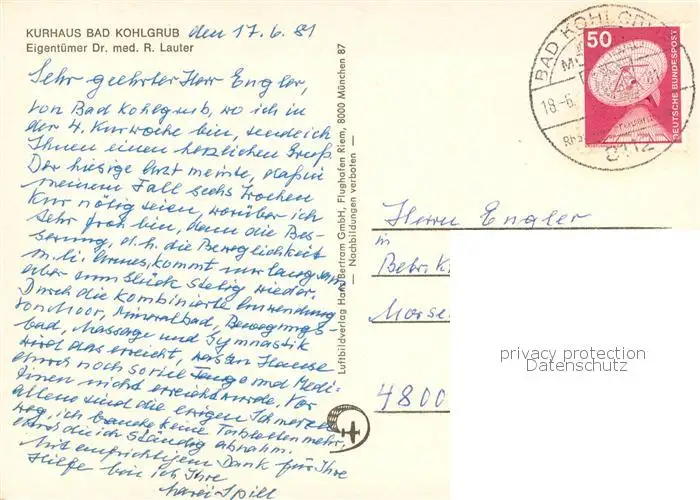 KURHAUS BAD KOHLGRUB den 17.6.81
Eigentümer Dr. med. R. Lauter
Sehr geehrter Herr Engler,
von Bad Kohlgrub, wo ich in
der 4. Kurwoche bin, sende ich
Ihnen einen herzlichen Gruß.
Der hiesige Arzt meinte, daß in
meinem Fall sechs Wochen
Kur nötig seien, worüber ich
sehr froh bin, denn die Bes-
serung, d.h. die Beweglichkeit
m. li. Armes, kommt nur langsam
aber zum Glück stetig wieder.
Durch die kombinierte Anwendung
von Moor, Mineralbad, Bewegungs-
bad, Massage und Gymnastik
wird das erreicht, was zu Hause
durch noch so viele und Medi-
zinen nicht erreicht wurde. Vor
allem sind die ewigen Schmerzen
weg, ich brauche keine Tabletten mehr,
durch die ich ständig abnahm.
Mit aufrichtigem Dank für Ihre
Hilfe bin ich Ihre
Spill
Luftbildverlag Hans Bertram GmbH, Flughafen Riem, 8000 München 87
— Nachbildungen verboten —
BAD KOHLGRUB
18.-6.
8112
50
DEUTSCHE BUNDESPOST
Herrn Engler
in
Betr. K
Marse
4800
privacy protection
Datenschutz